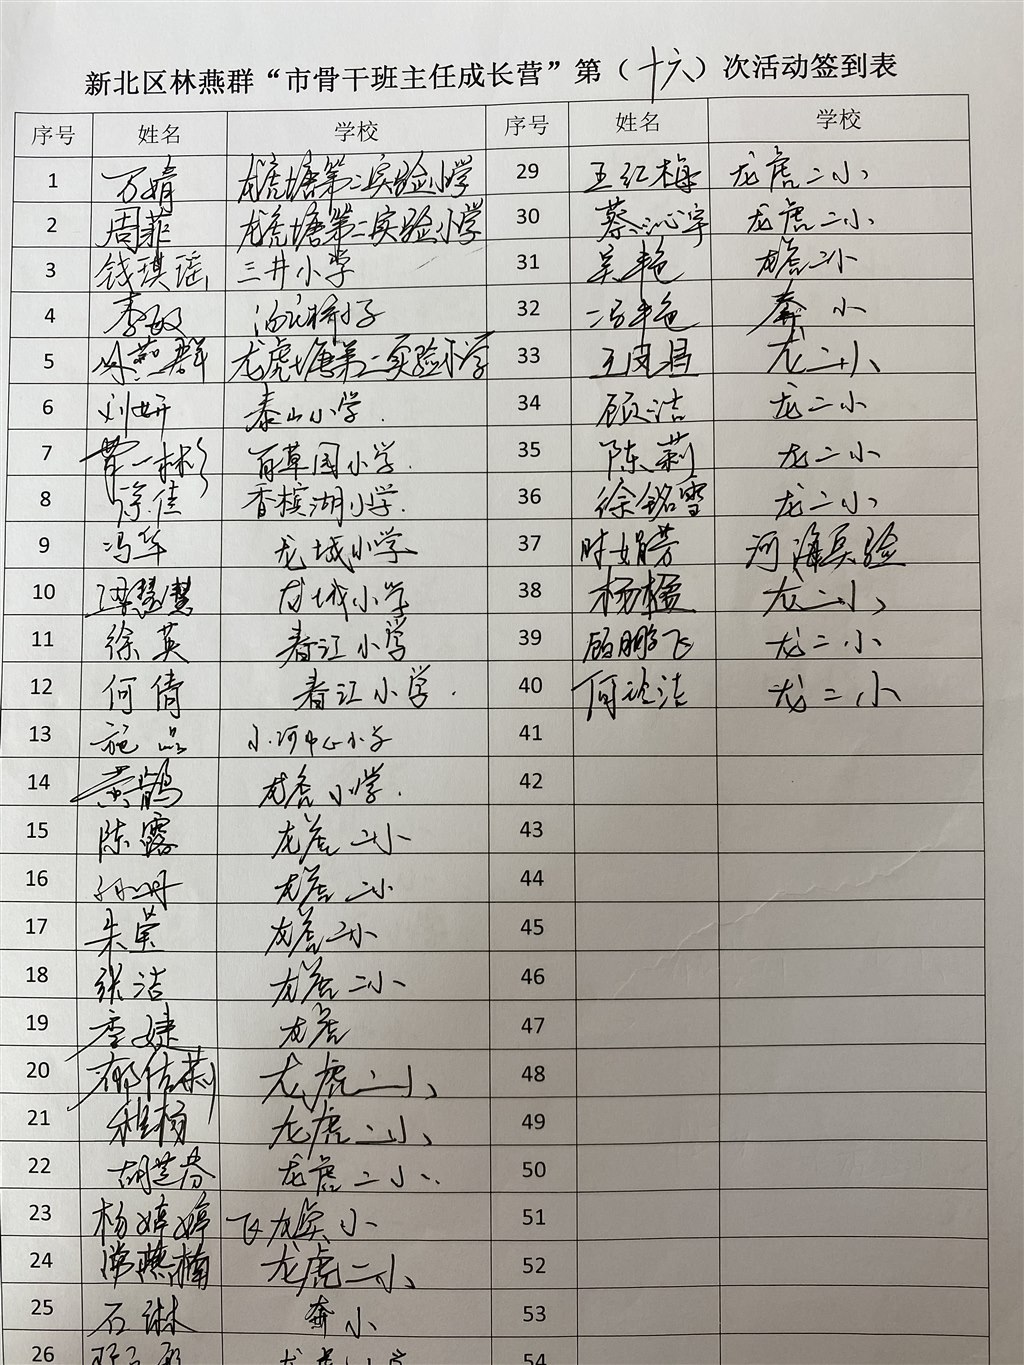 新北区林燕群“市骨干班主任成长营”第（十六）次活动签到表
序号 姓名 学校 序号 姓名 学校
1 万婧 龙虎塘第二实验小学 29 王红梅 龙虎二小
2 周菲 龙虎塘第二实验小学 30 蔡沁宇 龙虎二小
3 钱琪瑶 三井小学 31 吴艳 龙虎二小
4 李敏 32 冯艳 奔小
5 林燕群 龙虎塘第二实验小学 33 龙二小
6 刘妍 泰山小学. 34 顾洁 龙二小
7 曹一彬 百草园小学. 35 陈莉 龙二小
8 徐佳 香槟湖小学. 36 徐铭雪 龙二小
9 冯华 龙城小学 37 时娟芳 河海实验
10 梁慧慧 龙城小学 38 杨楹 龙二小
11 徐英 春江小学 39 顾鹏飞 龙二小
12 何倩 春江小学. 40 何 洁 龙二小
13 施品 小河中心小学 41
14 黄鹃 龙虎小学. 42
15 陈露 龙虎二小 43
16 孙丹 龙虎二小 44
17 朱荣 龙虎二小 45
18 张洁 龙虎二小 46
19 李婕 龙虎 47
20 莉 龙虎二小 48
21 程杨 龙虎二小 49
22 胡芝芬 龙虎二小. 50
23 杨婷婷 飞龙实小 51
24 楠 龙虎二小 52
25 石琳 奔小 53
26 54